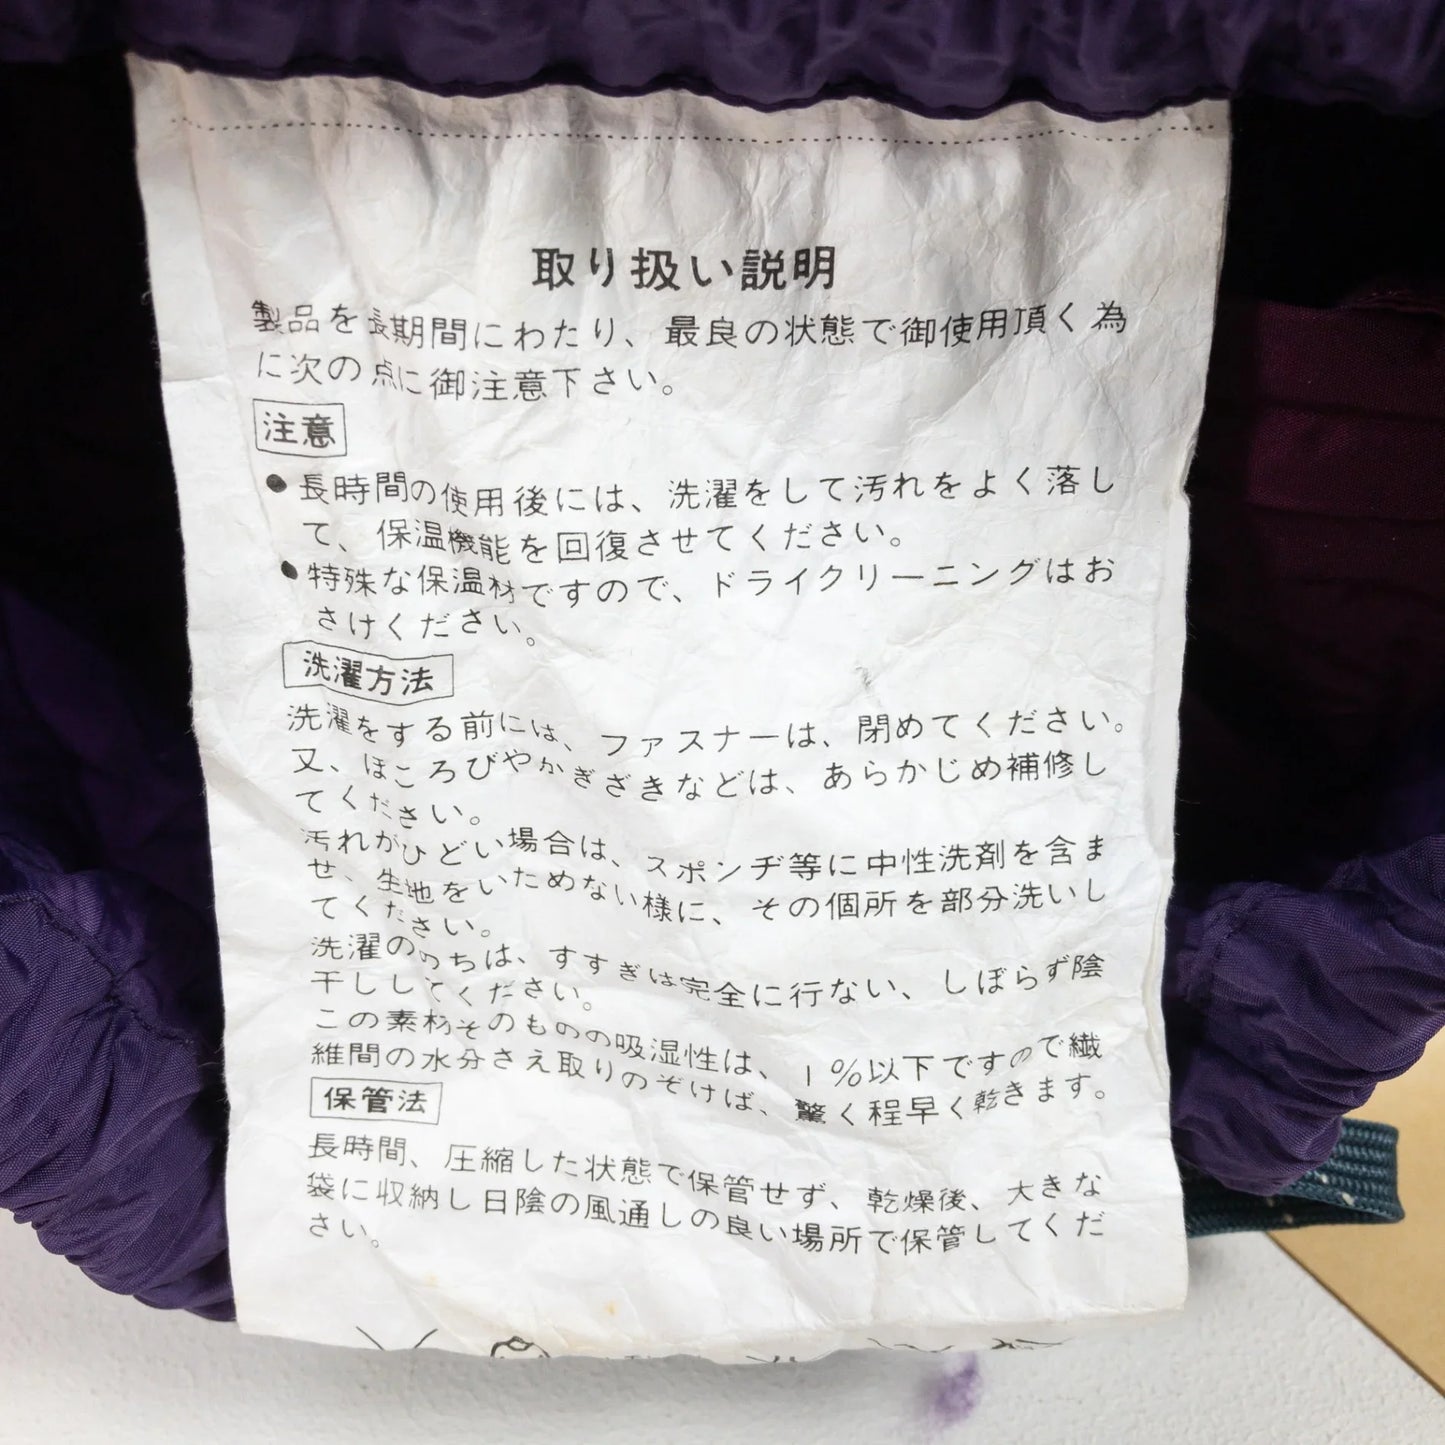 取り扱い説明
製品を長期間にわたり、最良の状態で御使用頂く為
に次の点に御注意下さい。
注意
●長時間の使用後には、洗濯をして汚れをよく落し
て、保温機能を回復させてください。
●特殊な保温材ですので、ドライクリーニングはお
さけください。
洗濯方法
洗濯をする前には、ファスナーは、閉めてください。
又、ほころびやかぎざきなどは、あらかじめ補修し
てください。
汚れがひどい場合は、スポンヂ等に中性洗剤を含ま
せ、生地をいためない様に、その個所を部分洗いし
てください。
洗濯ののちは、すすぎは完全に行ない、しぼらず陰
干ししてください。
この素材そのものの吸湿性は、1%以下ですので繊
維間の水分さえ取りのぞけば、驚く程早く乾きます。
保管法
長時間、圧縮した状態で保管せず、乾燥後、大きな
袋に収納し日陰の風通しの良い場所で保管してくだ
さい。